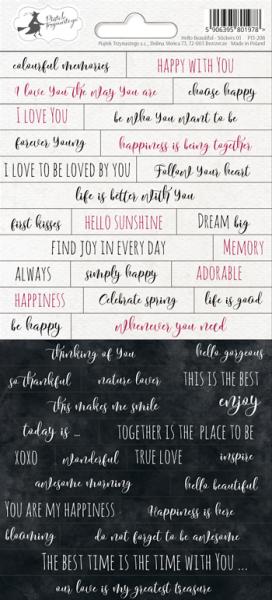 Piątek Trzynastego
5 906395 801978 >
Hello Beautiful - Stickers 01 P13-208
Piątek Trzynastego s.c., Dolina Słońca 73, 72-003 Bezrzecze Made in Poland
colourful memories HAPPY WITH YOU
I love You the way You are choose happy
I LOVE YOU be Who You want to be
forever Young happiness is being together
I LOVE TO BE LOVED BY YOU Follow Your heart
life is better with You
first kisses HELLO SUNSHINE DREAM big
FIND JOY IN EVERY DAY MEMORY
ALWAYS simply happy ADORABLE
HAPPINESS Celebrate spring life is good
be happy whenever you need
thinking of You hello gorgeous
so thankful nature lover THIS IS THE BEST
this makes me smile enjoy
today is ... TOGETHER IS THE PLACE TO BE
XOXO wonderful TRUE LOVE inspire
awesome morning hello beautiful
YOU ARE MY HAPPINESS Happiness is here
blooming do not forget to be awesome
THE BEST TIME IS THE TIME WITH YOU ...
our love is my greatest treasure